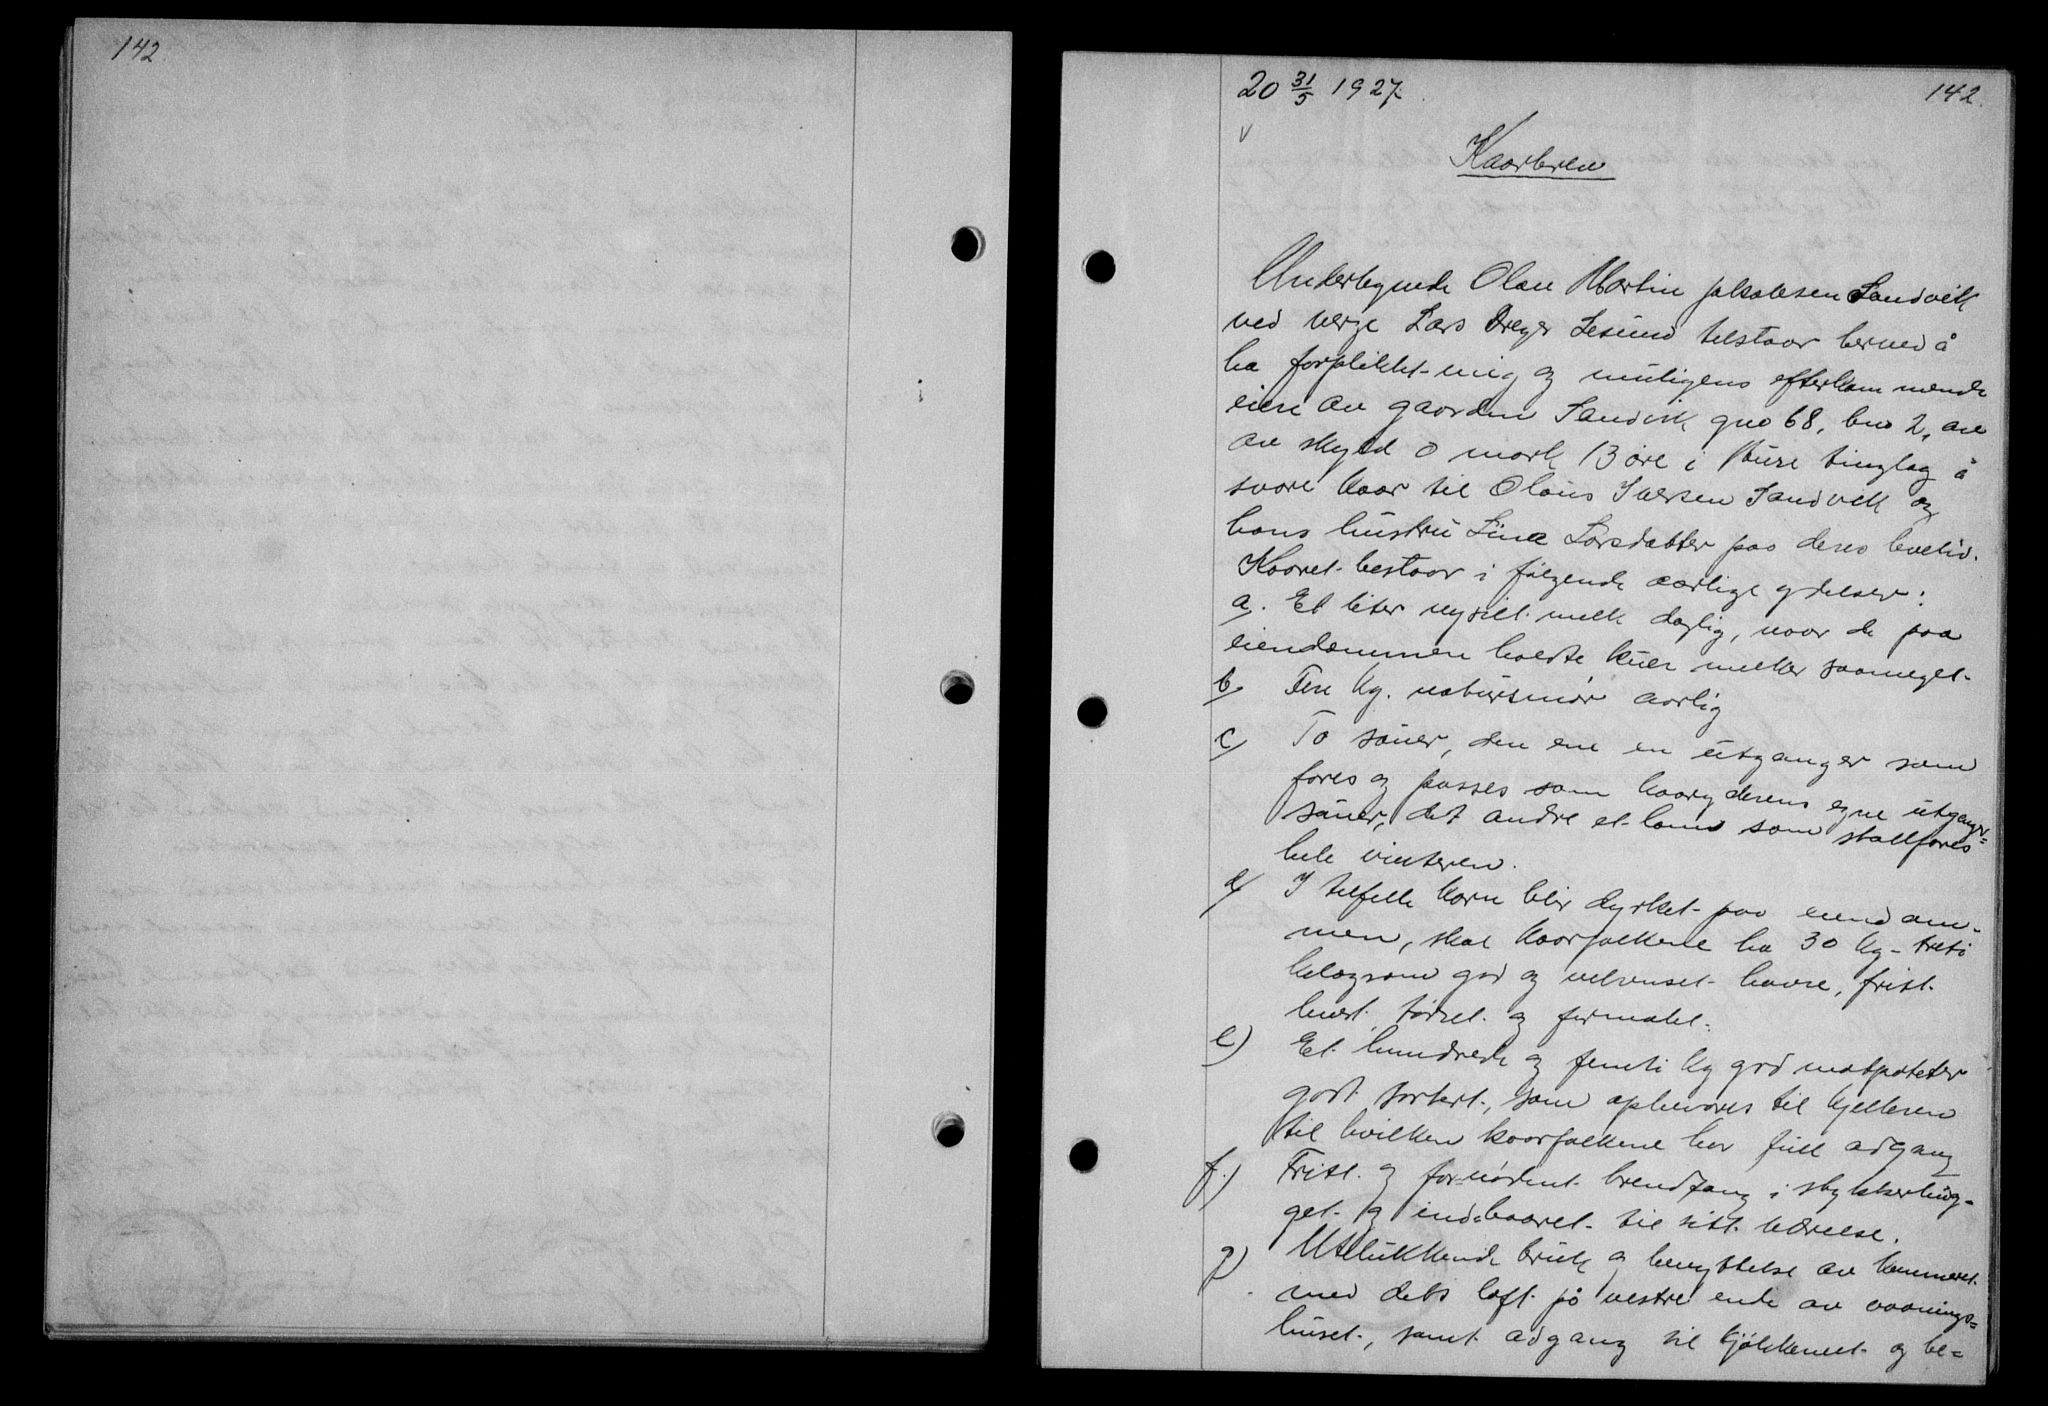 142
20 31/5 1927.
142.
Kaarbrev
Undertegnede Olav Martin Jakobsen Sandvik
ved verge Lars Dreyer Lesund tilstaar herved å
ha forpliktet mig og muligens efterkommende
eiere av gaarden Sandvik gno 68, bno 2, av
av skyld 0 mark 13 øre i Aure tinglag å
svare kaar til Olaus Iversen Sandvik og
hans hustru Lina Larsdatter paa deres levetid.
Kaaret bestaar i følgende aarlige ydelser:
a. Et liter nysilt melk daglig, naar de paa
eiendommen holdte kuer melker saameget.
b. Fem kg. natursmør aarlig
c) To sauer, den ene en utganger som
fores og passes som kaaryderens egne utganger=
sauer, det andre et lam som stallfores
hele vinteren.
d) I tilfelle korn blir dyrket paa eiendom-
men, skal kaarfolkene ha 30 kg - treti
kilogram god og velrenset havre, frit
levert tørket og formalet.
e) Et hundrede og femti kg god matpoteter
godt sortert, som opbevares til kjelleren
til hvilken kaarfolkene har full adgang
f.) Fritt og fornødent brendfang i stykkerhug-
get og indbaaret til sitt værelse.
g) Utelukkende bruk og benyttelse av kammeret
med dets loft på vestre ende av vaanings=
huset, samt adgang til kjøkkenet og be=